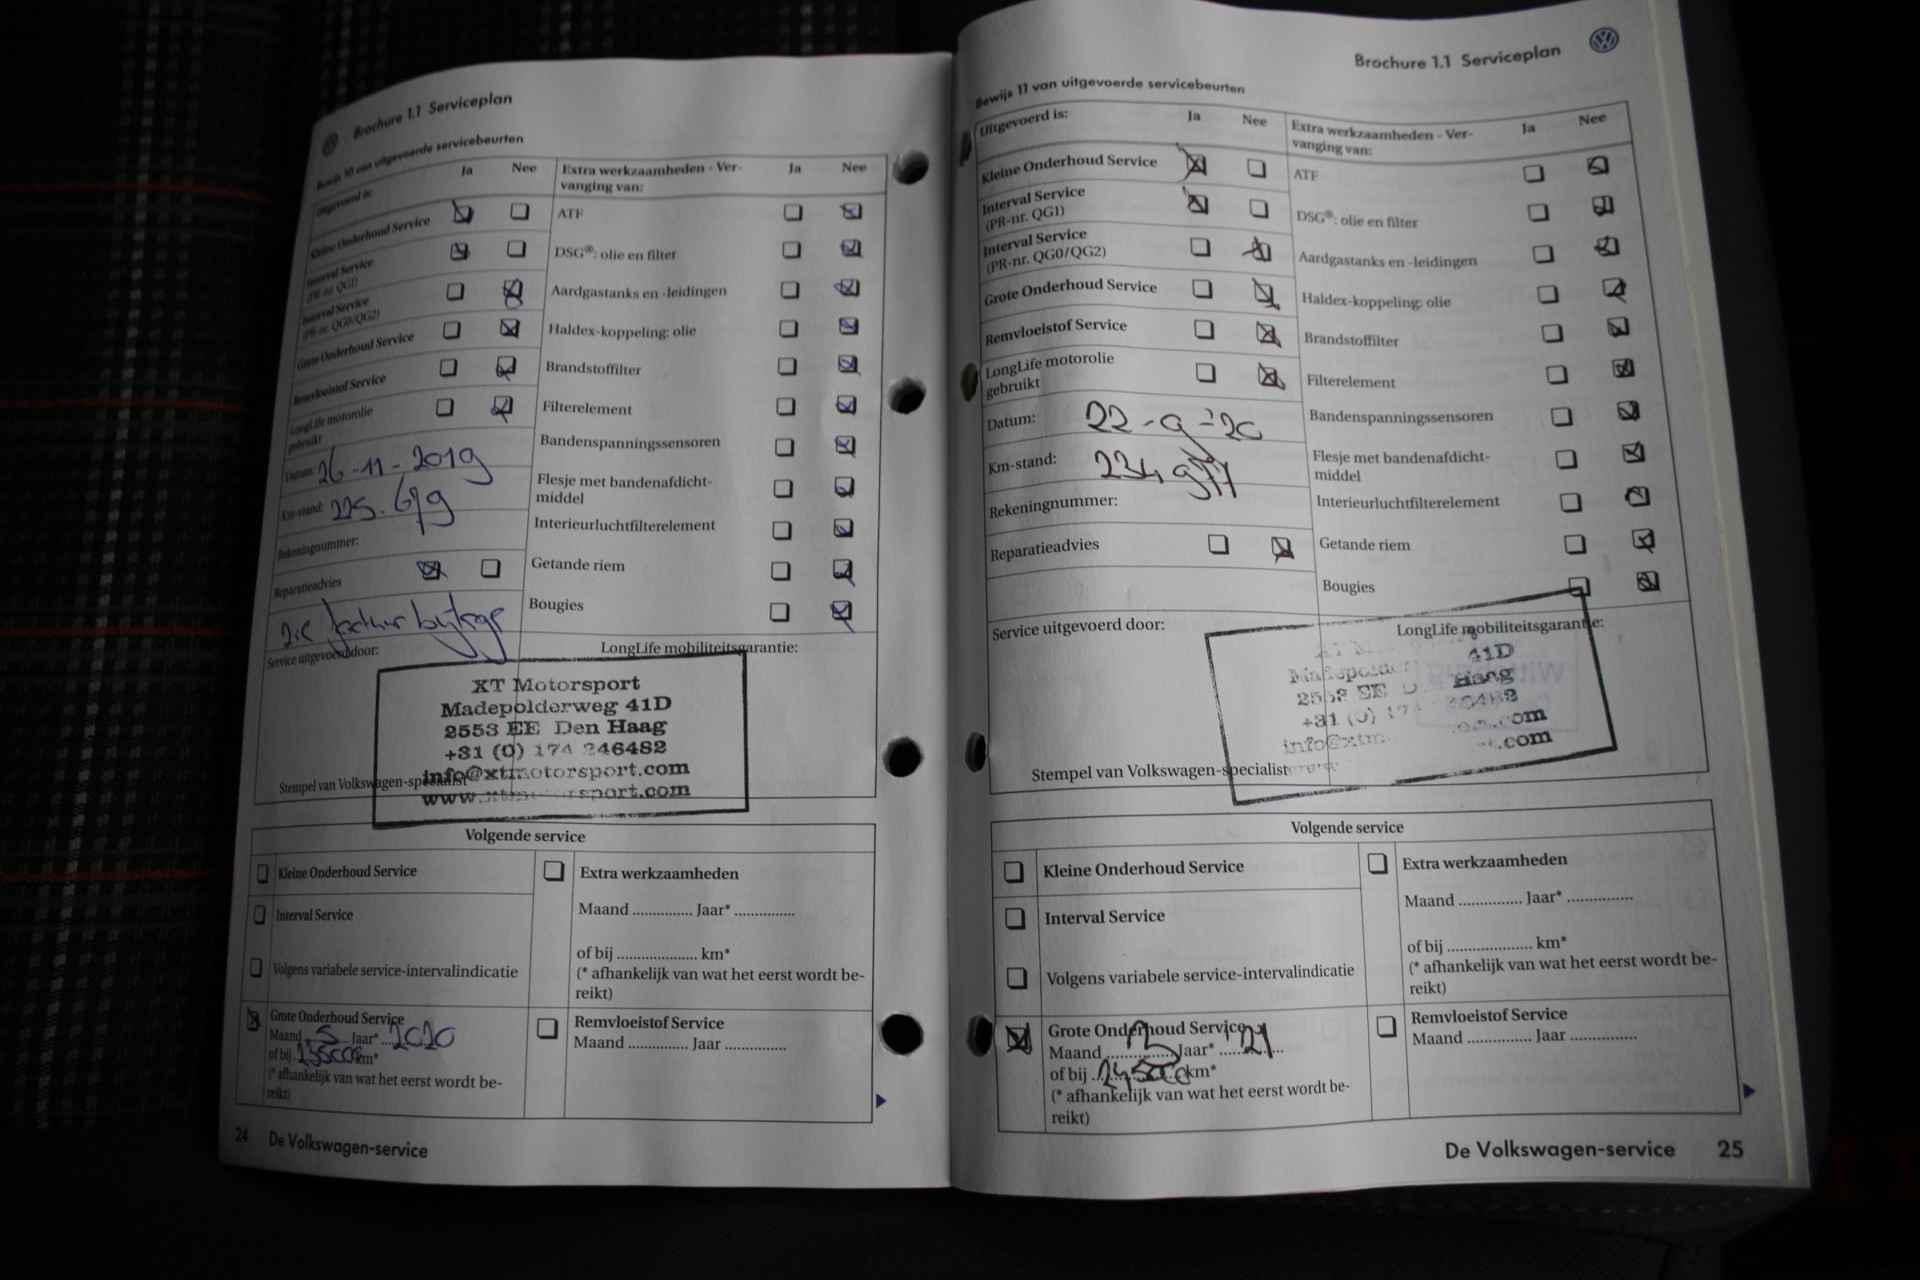 Brochure 1.1 Serviceplan
Bewijs 10 van uitgevoerde servicebeurten
Uitgevoerd is: Ja Nee
Extra werkzaamheden - Ver-
vanging van: Ja Nee
Kleine Onderhoud Service
Interval Service
(PR-nr. QG1)
Interval Service
(PR-nr. QG0/QG2)
Grote Onderhoud Service
Remvloeistof Service
LongLife motorolie
gebruikt
Datum: 26-11-2019
Km-stand: 225.679
Rekeningnummer:
Reparatieadvies
Zie factuur bijlage
ATF
DSG®: olie en filter
Aardgastanks en -leidingen
Haldex-koppeling: olie
Brandstoffilter
Filterelement
Bandenspanningssensoren
Flesje met bandenafdicht-
middel
Interieurluchtfilterelement
Getande riem
Bougies
Service uitgevoerd door:
LongLife mobiliteitsgarantie:
XT Motorsport
Madepolderweg 41D
2553 EE Den Haag
+31 (0) 174 246482
info@xtmotorsport.com
www.xtmotorsport.com
Stempel van Volkswagen-specialist
Volgende service
Kleine Onderhoud Service
Interval Service
Volgens variabele service-intervalindicatie
Grote Onderhoud Service
Maand 5 Jaar* 2020
of bij 235000 km*
(* afhankelijk van wat het eerst wordt be-
reikt)
Extra werkzaamheden
Maand .............. Jaar* ..............
of bij .................... km*
(* afhankelijk van wat het eerst wordt be-
reikt)
Remvloeistof Service
Maand .............. Jaar ..............
24 De Volkswagen-service
Brochure 1.1 Serviceplan
Bewijs 11 van uitgevoerde servicebeurten
Uitgevoerd is: Ja Nee
Extra werkzaamheden - Ver-
vanging van: Ja Nee
Kleine Onderhoud Service
Interval Service
(PR-nr. QG1)
Interval Service
(PR-nr. QG0/QG2)
Grote Onderhoud Service
Remvloeistof Service
LongLife motorolie
gebruikt
Datum: 22-9-'20
Km-stand:
Rekeningnummer:
Reparatieadvies
ATF
DSG®: olie en filter
Aardgastanks en -leidingen
Haldex-koppeling: olie
Brandstoffilter
Filterelement
Bandenspanningssensoren
Flesje met bandenafdicht-
middel
Interieurluchtfilterelement
Getande riem
Bougies
Service uitgevoerd door:
LongLife mobiliteitsgarantie:
41D
EE Haag
+31 (0)
.com
.com
Stempel van Volkswagen-specialist
Volgende service
Kleine Onderhoud Service
Interval Service
Volgens variabele service-intervalindicatie
Grote Onderhoud Service
Maand .............. Jaar* '21
of bij 245000 km*
(* afhankelijk van wat het eerst wordt be-
reikt)
Extra werkzaamheden
Maand .............. Jaar* ..............
of bij .................... km*
(* afhankelijk van wat het eerst wordt be-
reikt)
Remvloeistof Service
Maand .............. Jaar ..............
De Volkswagen-service 25